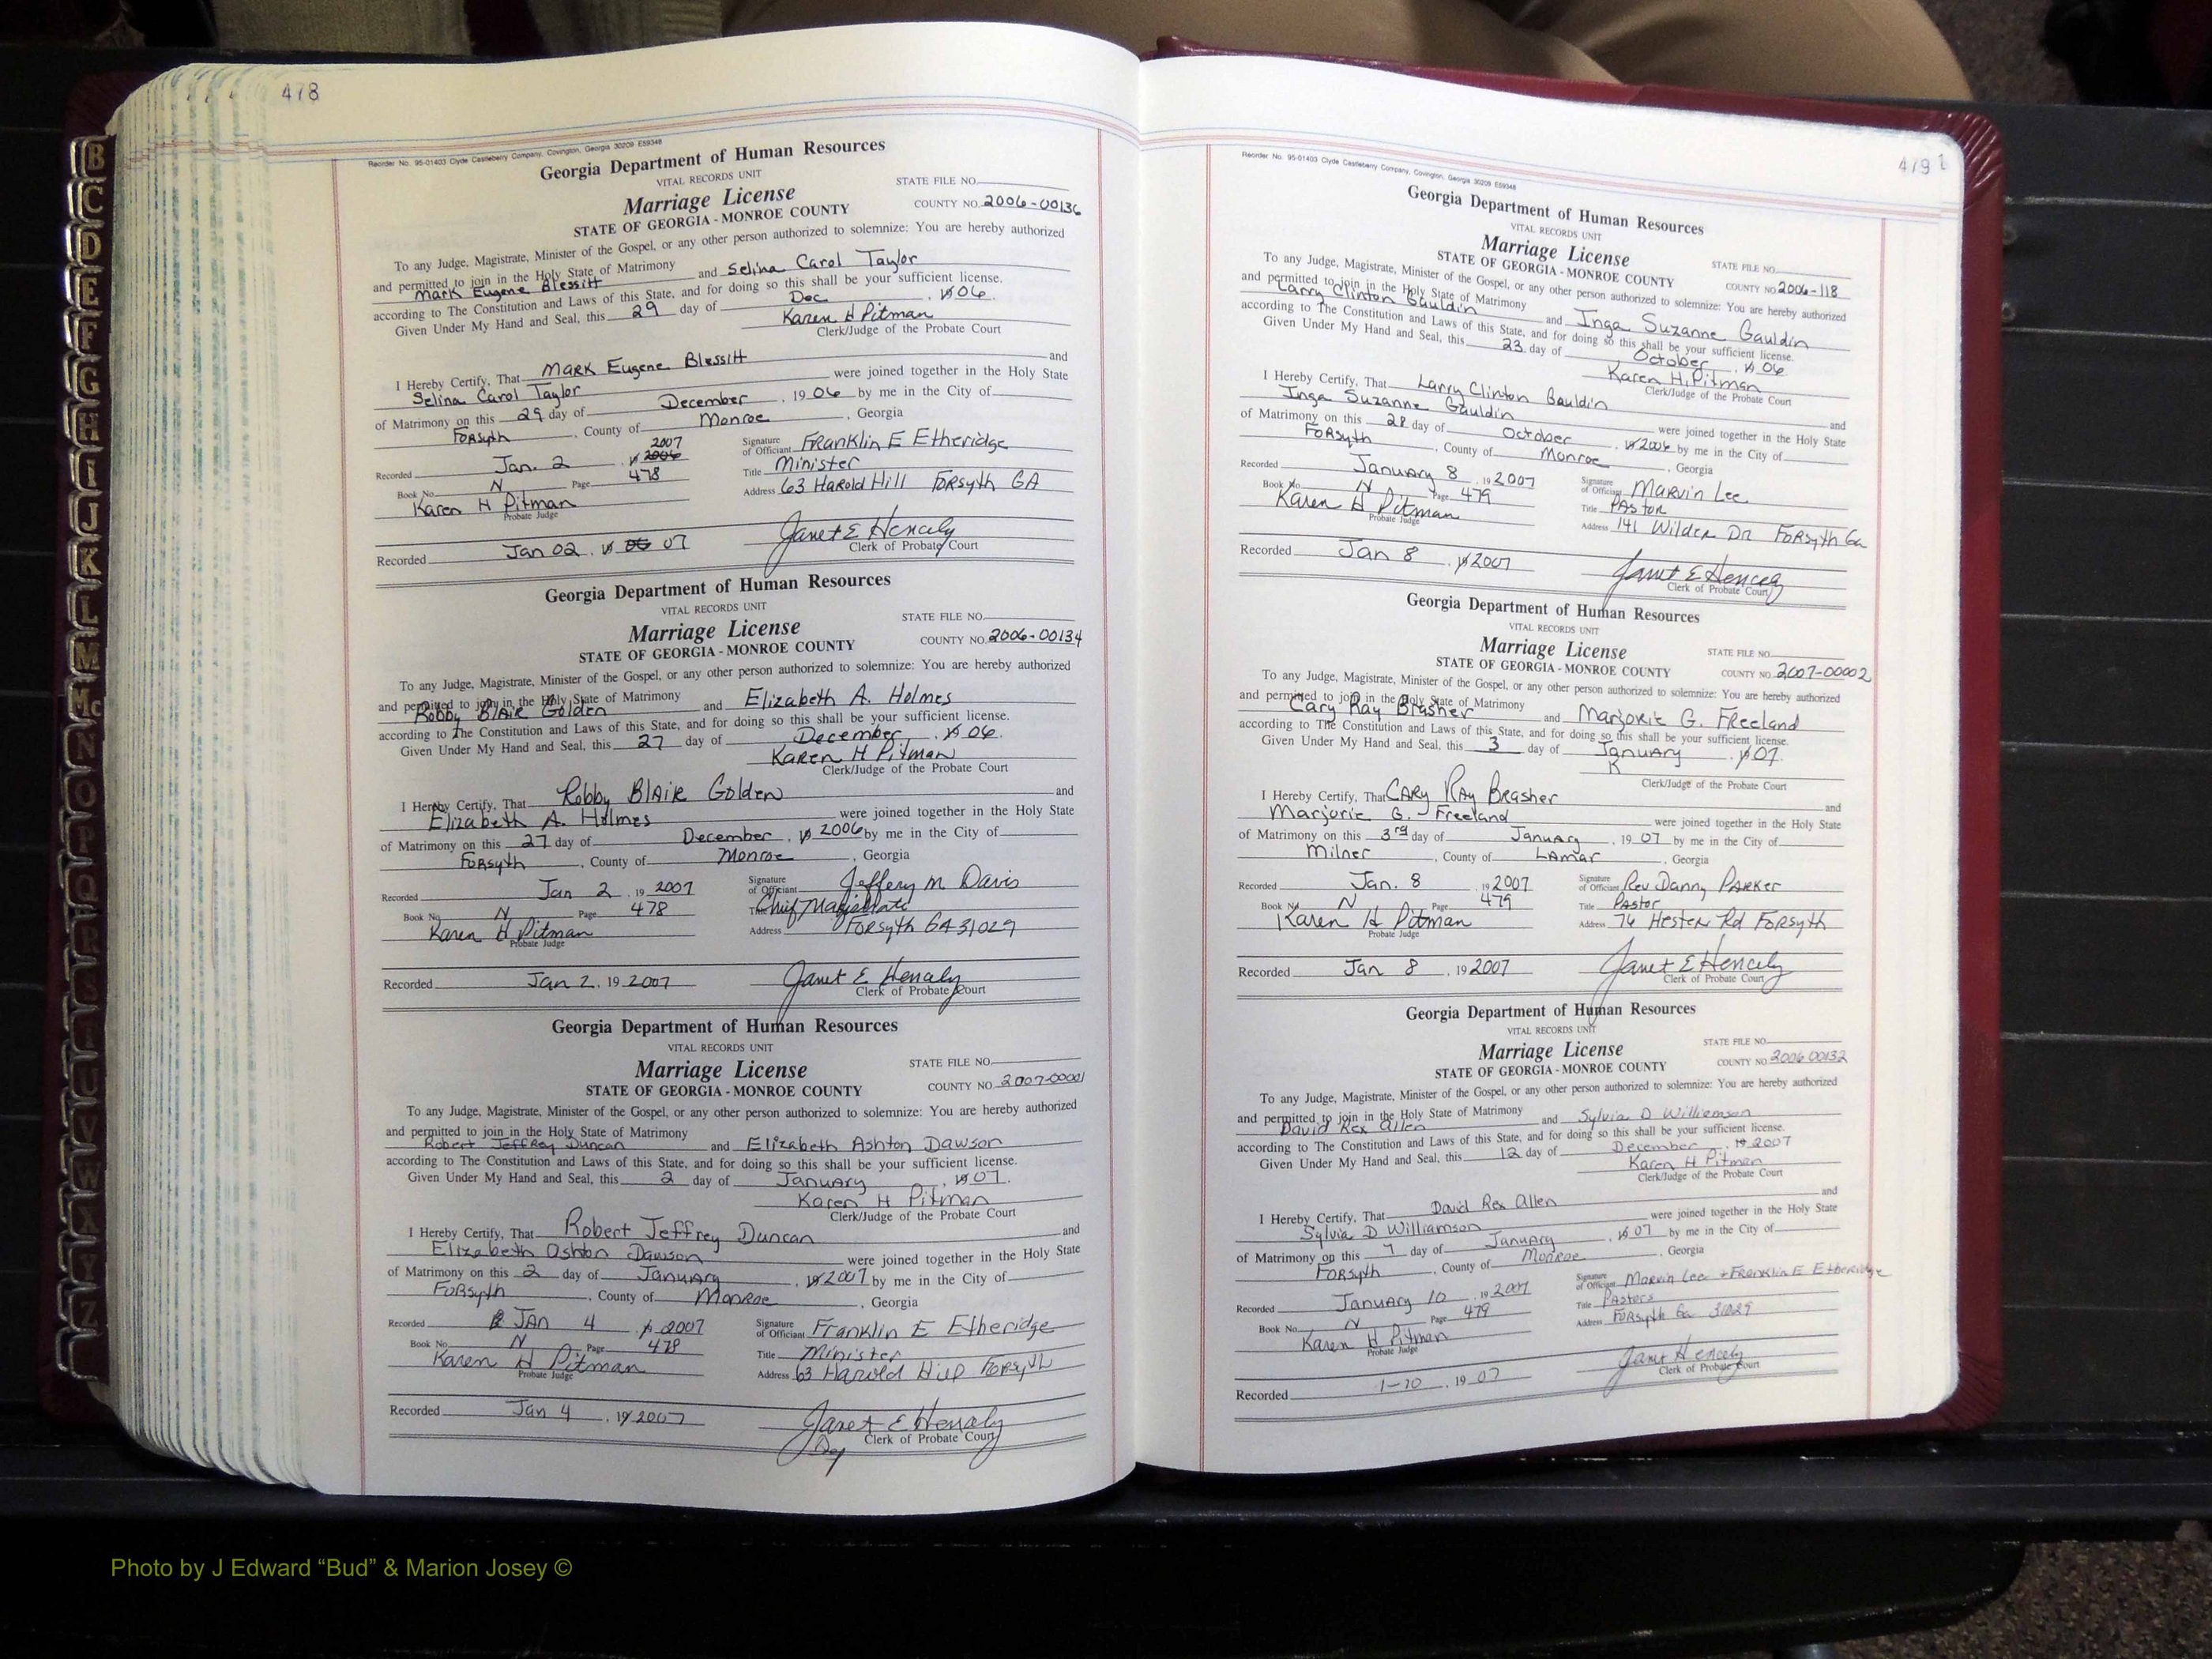 478
B
C
D
E
F
G
H
I
J
K
L
M
Mc
N
O
P
Q
R
W
X
Y
Z
Reorder No. 95-01403 Clyde Castleberry Company, Covington, Georgia 30209 E59348
Georgia Department of Human Resources
VITAL RECORDS UNIT
Marriage License
STATE OF GEORGIA - MONROE COUNTY
STATE FILE NO.
COUNTY NO. 2006-00136
To any Judge, Magistrate, Minister of the Gospel, or any other person authorized to solemnize: You are hereby authorized
and permitted to join in the Holy State of Matrimony
Mark Eugene Blessitt and Selina Carol Taylor
according to The Constitution and Laws of this State, and for doing so this shall be your sufficient license.
Given Under My Hand and Seal, this 29 day of Dec , 19 06.
Karen H Pitman
Clerk/Judge of the Probate Court
I Hereby Certify, That Mark Eugene Blessitt and
Selina Carol Taylor were joined together in the Holy State
of Matrimony on this 29 day of December , 19 06 by me in the City of
Forsyth , County of Monroe , Georgia
Recorded Jan. 2 , 19 2006 2007
Book No. N Page 478
Karen H Pitman
Probate Judge
Signature of Officiant Franklin E Etheridge
Title Minister
Address 63 Harold Hill Forsyth GA
Recorded Jan 02 , 19 06 07
Janet E Hencely
Clerk of Probate Court
Georgia Department of Human Resources
VITAL RECORDS UNIT
Marriage License
STATE OF GEORGIA - MONROE COUNTY
STATE FILE NO.
COUNTY NO. 2006-00134
To any Judge, Magistrate, Minister of the Gospel, or any other person authorized to solemnize: You are hereby authorized
and permitted to join in the Holy State of Matrimony
Robby Blair Golden and Elizabeth A. Holmes
according to The Constitution and Laws of this State, and for doing so this shall be your sufficient license.
Given Under My Hand and Seal, this 27 day of December , 19 06.
Karen H Pitman
Clerk/Judge of the Probate Court
I Hereby Certify, That Robby Blair Golden and
Elizabeth A. Holmes were joined together in the Holy State
of Matrimony on this 27 day of December , 19 2006 by me in the City of
Forsyth , County of Monroe , Georgia
Recorded Jan 2 , 19 2007
Book No. N Page 478
Karen H Pitman
Probate Judge
Signature of Officiant Jeffery M. Davis
Title Chief Magistrate
Address Forsyth GA 31029
Recorded Jan 2 , 19 2007
Janet E Hencely
Clerk of Probate Court
Georgia Department of Human Resources
VITAL RECORDS UNIT
Marriage License
STATE OF GEORGIA - MONROE COUNTY
STATE FILE NO.
COUNTY NO. 2007-00001
To any Judge, Magistrate, Minister of the Gospel, or any other person authorized to solemnize: You are hereby authorized
and permitted to join in the Holy State of Matrimony
Robert Jeffrey Duncan and Elizabeth Ashton Dawson
according to The Constitution and Laws of this State, and for doing so this shall be your sufficient license.
Given Under My Hand and Seal, this 2 day of January , 19 07.
Karen H Pitman
Clerk/Judge of the Probate Court
I Hereby Certify, That Robert Jeffrey Duncan and
Elizabeth Ashton Dawson were joined together in the Holy State
of Matrimony on this 2 day of January , 19 2007 by me in the City of
Forsyth , County of Monroe , Georgia
Recorded JAN 4 , 19 2007
Book No. N Page 478
Karen H Pitman
Probate Judge
Signature of Officiant Franklin E Etheridge
Title Minister
Address 63 Harold Hill Forsyth
Recorded Jan 4 , 19 2007
Janet E Hencely
Clerk of Probate Court
479
Reorder No. 95-01403 Clyde Castleberry Company, Covington, Georgia 30209 E59348
Georgia Department of Human Resources
VITAL RECORDS UNIT
Marriage License
STATE OF GEORGIA - MONROE COUNTY
STATE FILE NO.
COUNTY NO. 2006-118
To any Judge, Magistrate, Minister of the Gospel, or any other person authorized to solemnize: You are hereby authorized
and permitted to join in the Holy State of Matrimony
Larry Clinton Gauldin and Inga Suzanne Gauldin
according to The Constitution and Laws of this State, and for doing so this shall be your sufficient license.
Given Under My Hand and Seal, this 23 day of October , 19 06
Karen H. Pitman
Clerk/Judge of the Probate Court
I Hereby Certify, That Larry Clinton Gauldin and
Inga Suzanne Gauldin were joined together in the Holy State
of Matrimony on this 28 day of October , 19 2006 by me in the City of
Forsyth , County of Monroe , Georgia
Recorded January 8 , 19 2007
Book No. N Page 479
Karen H Pitman
Probate Judge
Signature of Officiant Marvin Lee
Title Pastor
Address 141 Wilder Dr Forsyth Ga
Recorded Jan 8 , 19 2007
Janet E Hencely
Clerk of Probate Court
Georgia Department of Human Resources
VITAL RECORDS UNIT
Marriage License
STATE OF GEORGIA - MONROE COUNTY
STATE FILE NO.
COUNTY NO. 2007-00002
To any Judge, Magistrate, Minister of the Gospel, or any other person authorized to solemnize: You are hereby authorized
and permitted to join in the Holy State of Matrimony
Cary Ray Brasher and Marjorie G. Freeland
according to The Constitution and Laws of this State, and for doing so this shall be your sufficient license.
Given Under My Hand and Seal, this 3 day of January , 19 07.
K
Clerk/Judge of the Probate Court
I Hereby Certify, That Cary Ray Brasher and
Marjorie G. Freeland were joined together in the Holy State
of Matrimony on this 3rd day of January , 19 07 by me in the City of
Milner , County of Lamar , Georgia
Recorded Jan. 8 , 19 2007
Book No. N Page 479
Karen H Pitman
Probate Judge
Signature of Officiant Rev Danny Parker
Title Pastor
Address 76 Hester Rd Forsyth
Recorded Jan 8 , 19 2007
Janet E Hencely
Clerk of Probate Court
Georgia Department of Human Resources
VITAL RECORDS UNIT
Marriage License
STATE OF GEORGIA - MONROE COUNTY
STATE FILE NO.
COUNTY NO. 2006 00132
To any Judge, Magistrate, Minister of the Gospel, or any other person authorized to solemnize: You are hereby authorized
and permitted to join in the Holy State of Matrimony
David Rex Allen and Sylvia D Williamson
according to The Constitution and Laws of this State, and for doing so this shall be your sufficient license.
Given Under My Hand and Seal, this 12 day of December , 19 2007
Karen H Pitman
Clerk/Judge of the Probate Court
I Hereby Certify, That David Rex Allen and
Sylvia D Williamson were joined together in the Holy State
of Matrimony on this 7 day of January , 19 07 by me in the City of
Forsyth , County of Monroe , Georgia
Recorded January 10 , 19 2007
Book No. N Page 479
Karen H Pitman
Probate Judge
Signature of Officiant Marvin Lee + Franklin E Etheridge
Title Pastors
Address Forsyth Ga 31029
Recorded 1-10 , 19 07
Janet Hencely
Clerk of Probate Court
Photo by J Edward “Bud” & Marion Josey ©